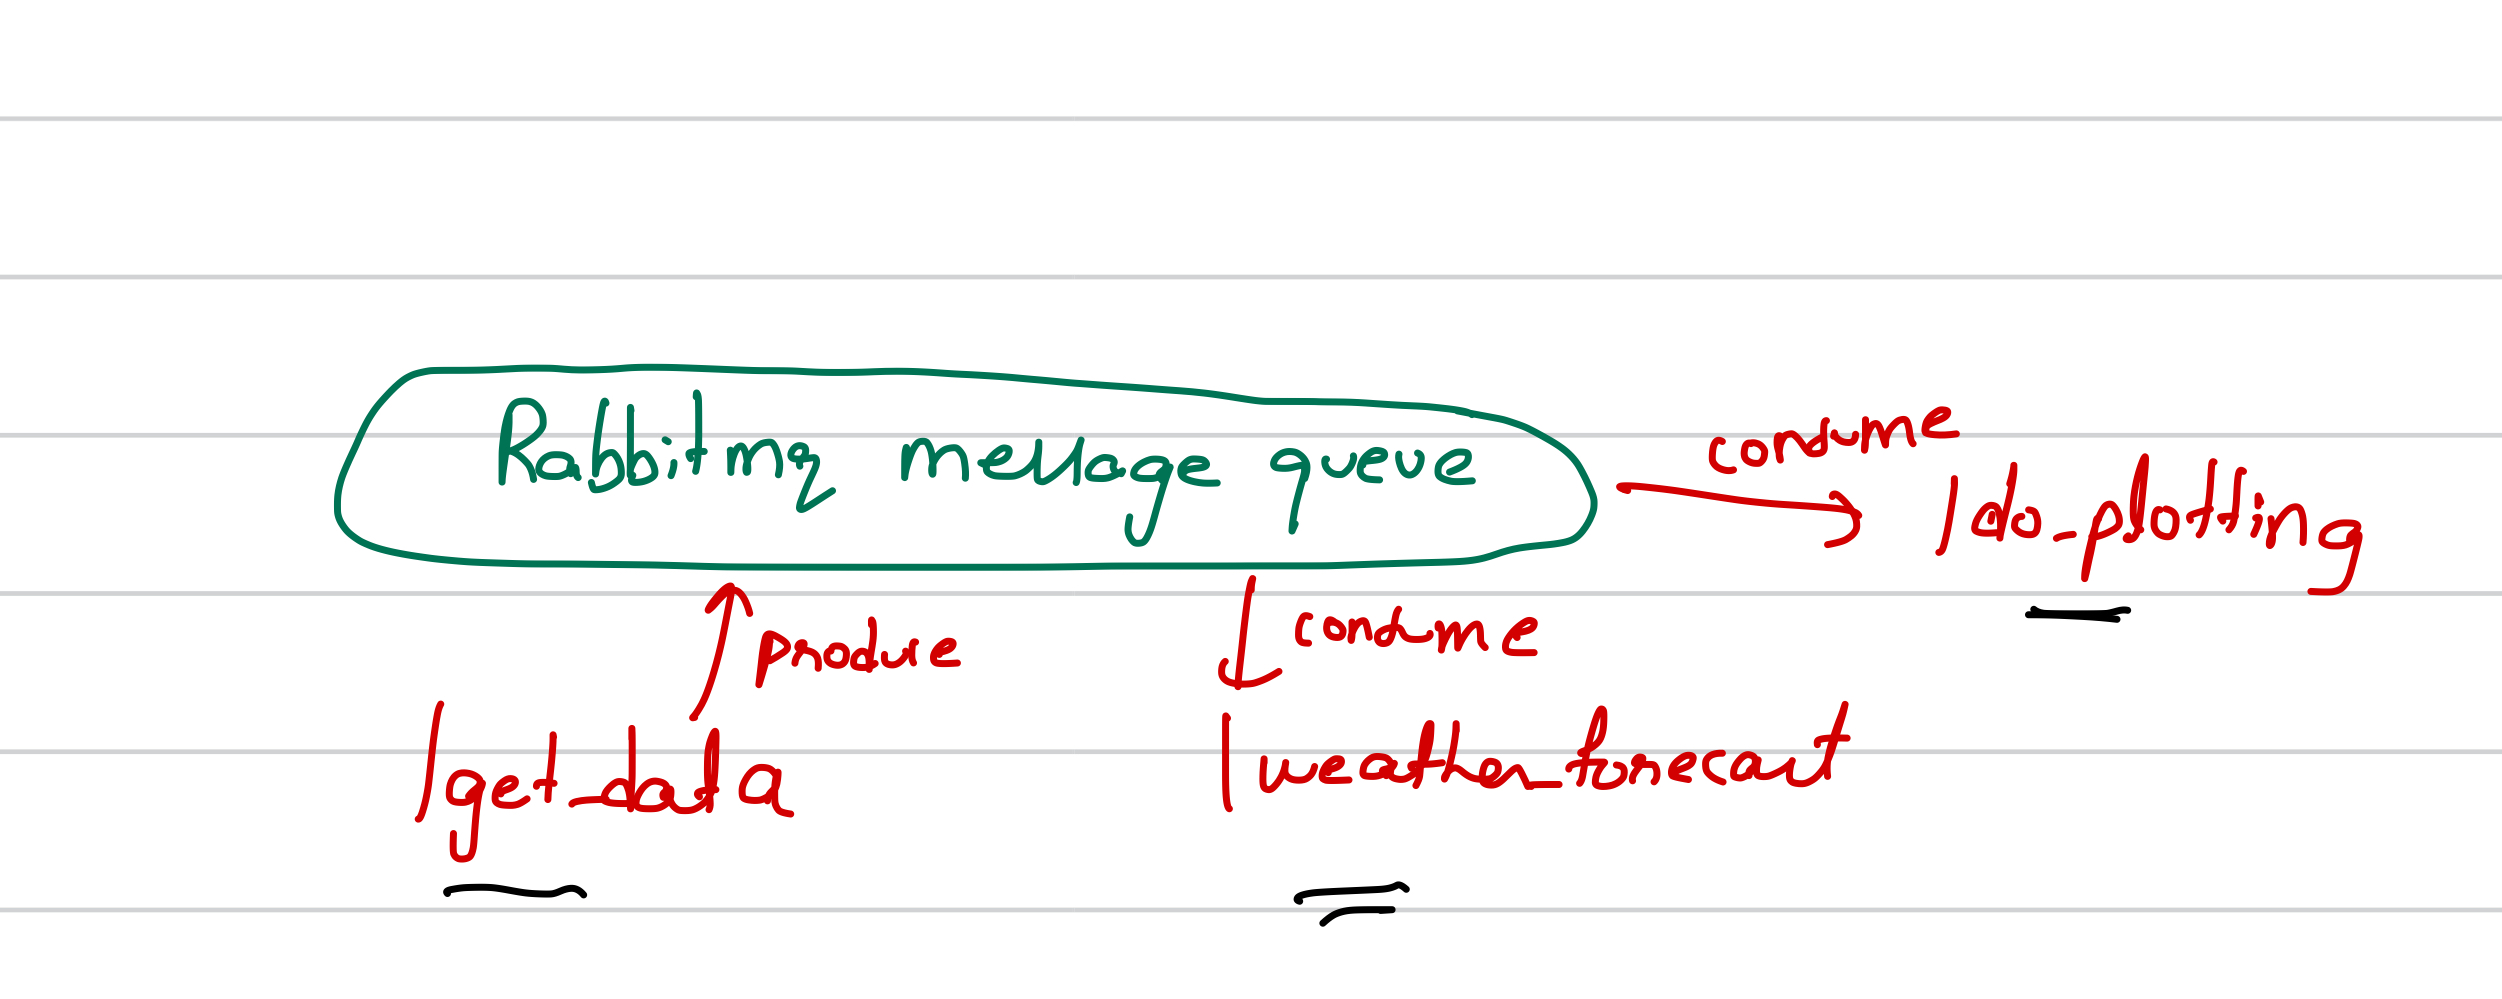 Rabbitmq message queue
consume
/do-plotting
produce
consume
/get-data
/weather-forecast